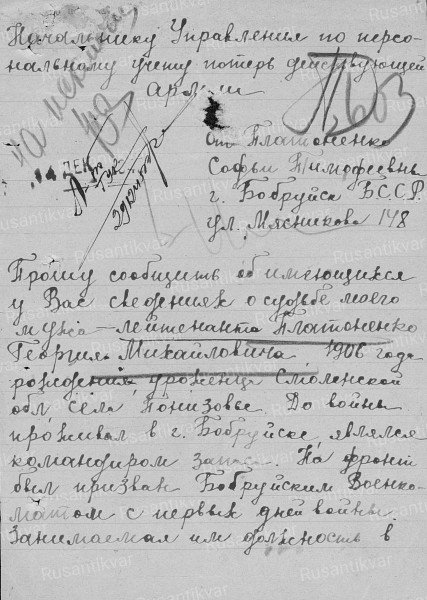 Начальнику Управления по персо-
нальному учету потерь действующей
армии
ДЕК
От Платоненко
Софьи Тимофеевны
г. Бобруйск БССР.
ул. Мясникова 148
Прошу сообщить об имеющихся
у Вас сведениях о судьбе моего
мужа – лейтенанта Платоненко
Георгия Михайловича, 1906 года
рождения, уроженца Смоленской
обл, села Понизовье. До войны
проживал в г. Бобруйске, являлся
командиром запаса. На фронт
был призван Бобруйским Военко-
матом с первых дней войны.
Занимаемая им должность в
Rusantikvar